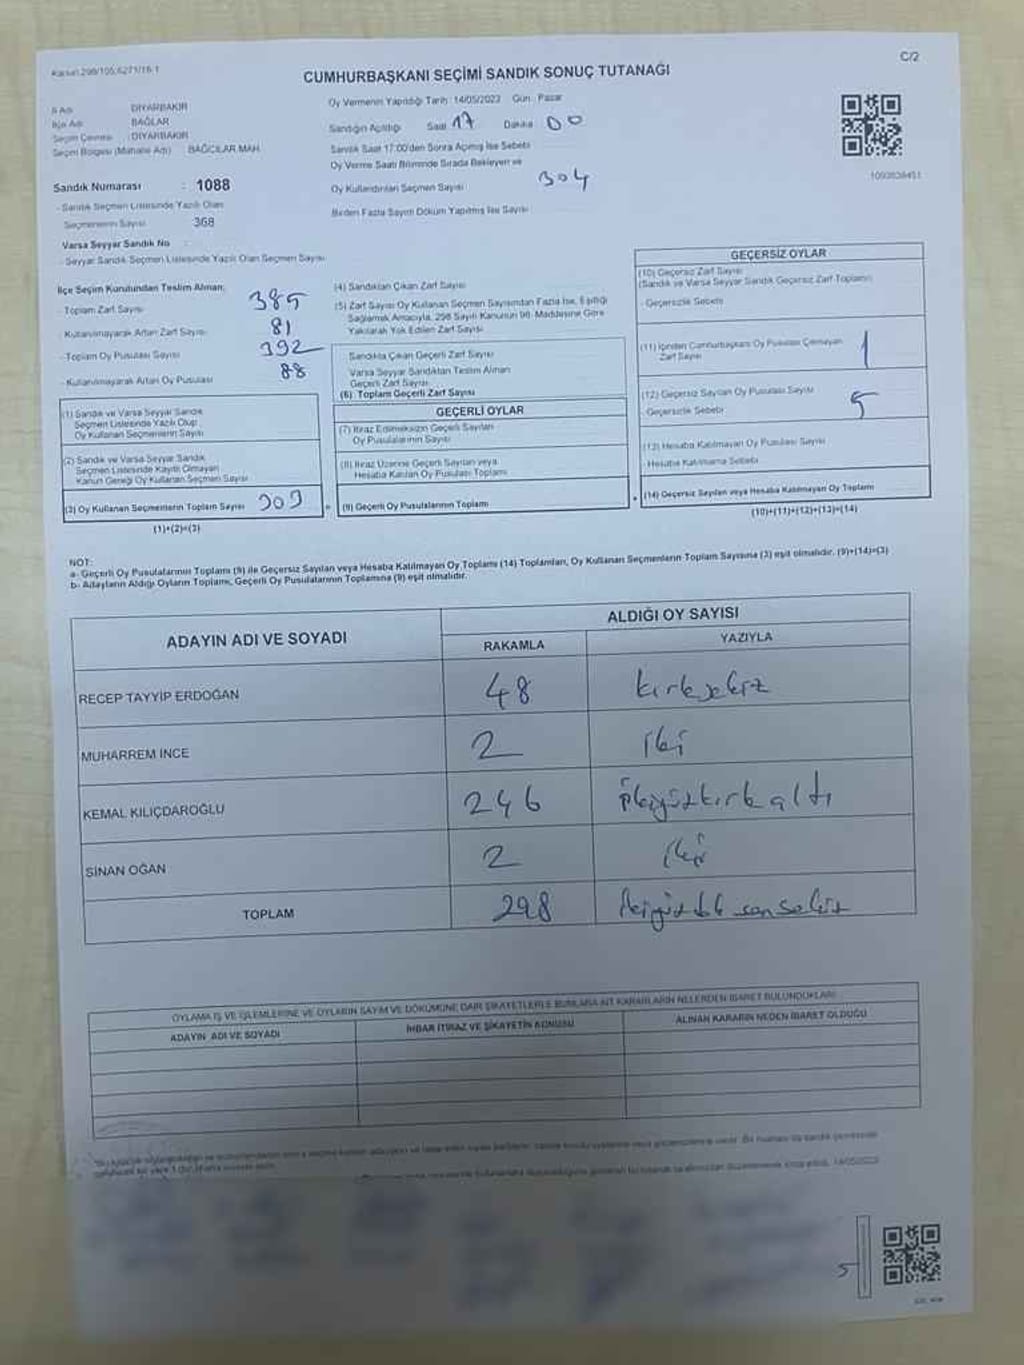 Kanun 298/105,6271/16-1
C/2
CUMHURBAŞKANI SEÇİMİ SANDIK SONUÇ TUTANAĞI
İl Adı : DİYARBAKIR
İlçe Adı : BAĞLAR
Seçim Çevresi : DİYARBAKIR
Seçim Bölgesi (Mahalle Adı) : BAĞCILAR MAH.
Oy Vermenin Yapıldığı Tarih: 14/05/2023 Gün: Pazar
Sandığın Açıldığı Saat 17 Dakika 00
Sandık Saat 17:00'den Sonra Açılmış İse Sebebi
Oy Verme Saati Bitiminde Sırada Bekleyen ve
Oy Kullandırılan Seçmen Sayısı 304
Birden Fazla Sayım Döküm Yapılmış İse Sayısı
1093838451
Sandık Numarası : 1088
- Sandık Seçmen Listesinde Yazılı Olan
Seçmenlerin Sayısı 368
Varsa Seyyar Sandık No :
- Seyyar Sandık Seçmen Listesinde Yazılı Olan Seçmen Sayısı
İlçe Seçim Kurulundan Teslim Alınan;
- Toplam Zarf Sayısı 385
- Kullanılmayarak Artan Zarf Sayısı 81
- Toplam Oy Pusulası Sayısı 392
- Kullanılmayarak Artan Oy Pusulası 88
(1) Sandık ve Varsa Seyyar Sandık
Seçmen Listesinde Yazılı Olup
Oy Kullanan Seçmenlerin Sayısı
(2) Sandık ve Varsa Seyyar Sandık
Seçmen Listesinde Kayıtlı Olmayan
Kanun Gereği Oy Kullanan Seçmen Sayısı
(3) Oy Kullanan Seçmenlerin Toplam Sayısı
(1)+(2)=(3)
(4) Sandıktan Çıkan Zarf Sayısı
(5) Zarf Sayısı Oy Kullanan Seçmen Sayısından Fazla İse, Eşitliği
Sağlamak Amacıyla, 298 Sayılı Kanunun 98. Maddesine Göre
Yakılarak Yok Edilen Zarf Sayısı
Sandıkta Çıkan Geçerli Zarf Sayısı
Varsa Seyyar Sandıktan Teslim Alınan
Geçerli Zarf Sayısı
(6) Toplam Geçerli Zarf Sayısı
GEÇERLİ OYLAR
(7) İtiraz Edilmeksizin Geçerli Sayılan
Oy Pusulalarının Sayısı
(8) İtiraz Üzerine Geçerli Sayılan veya
Hesaba Katılan Oy Pusulası Toplamı
(9) Geçerli Oy Pusulalarının Toplamı
GEÇERSİZ OYLAR
(10) Geçersiz Zarf Sayısı
(Sandık ve Varsa Seyyar Sandık Geçersiz Zarf Toplamı)
- Geçersizlik Sebebi
(11) İçinden Cumhurbaşkanı Oy Pusulası Çıkmayan
Zarf Sayısı 1
(12) Geçersiz Sayılan Oy Pusulası Sayısı
- Geçersizlik Sebebi 5
(13) Hesaba Katılmayan Oy Pusulası Sayısı
- Hesaba Katılmama Sebebi
(14) Geçersiz Sayılan veya Hesaba Katılmayan Oy Toplamı
(10)+(11)+(12)+(13)=(14)
NOT:
a- Geçerli Oy Pusulalarının Toplamı (9) ile Geçersiz Sayılan veya Hesaba Katılmayan Oy Toplamı (14) Toplamları, Oy Kullanan Seçmenlerin Toplam Sayısına (3) eşit olmalıdır. (9)+(14)=(3)
b- Adayların Aldığı Oyların Toplamı, Geçerli Oy Pusulalarının Toplamına (9) eşit olmalıdır.
ADAYIN ADI VE SOYADI
ALDIĞI OY SAYISI
RAKAMLA YAZIYLA
RECEP TAYYİP ERDOĞAN 48 kırksekiz
MUHARREM İNCE 2 iki
KEMAL KILIÇDAROĞLU 246 ikiyüzkırkaltı
SİNAN OĞAN 2 iki
TOPLAM 298
OYLAMA İŞ VE İŞLEMLERİNE VE OYLARIN SAYIM VE DÖKÜMÜNE DAİR ŞİKAYETLERLE BUNLARA AİT KARARLARIN NELERDEN İBARET BULUNDUKLARI
ADAYIN ADI VE SOYADI
İHBAR İTİRAZ VE ŞİKAYETİN KONUSU
ALINAN KARARIN NEDEN İBARET OLDUĞU
5